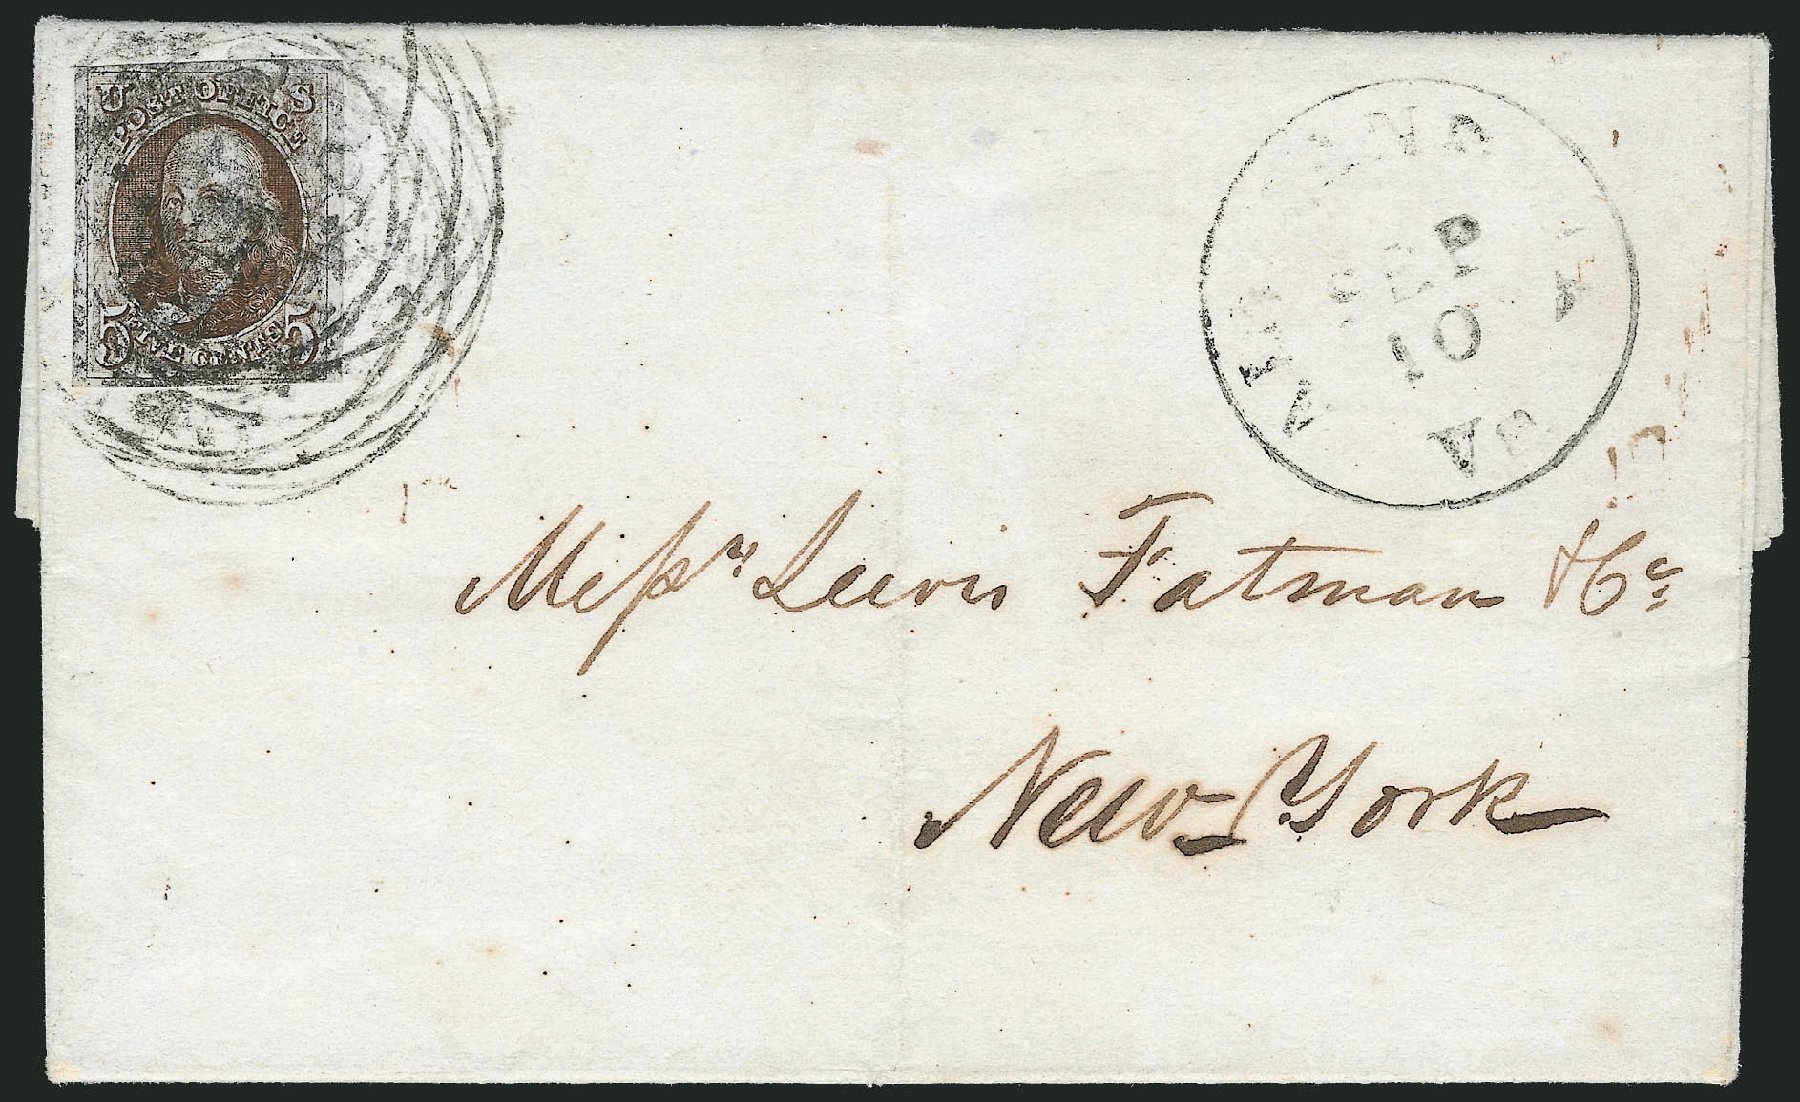 U S
POST OFFICE
5 FIVE CENTS 5
SEP
10
VA
Messrs Lewis Fatman & Co:
New York